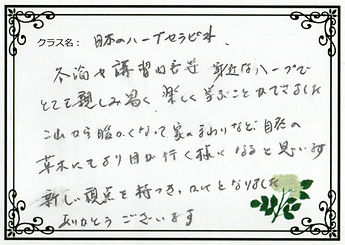 クラス名： 日本のハーブセラピスト
各論や講習内容等 身近なハーブで
とても親しみ易く、楽しく学ぶことができました
これから暖かくなって家のまわりなど自然の
草木にもより目が行く様になると思います
新しい視点を持つきっかけとなりました
ありがとうございます